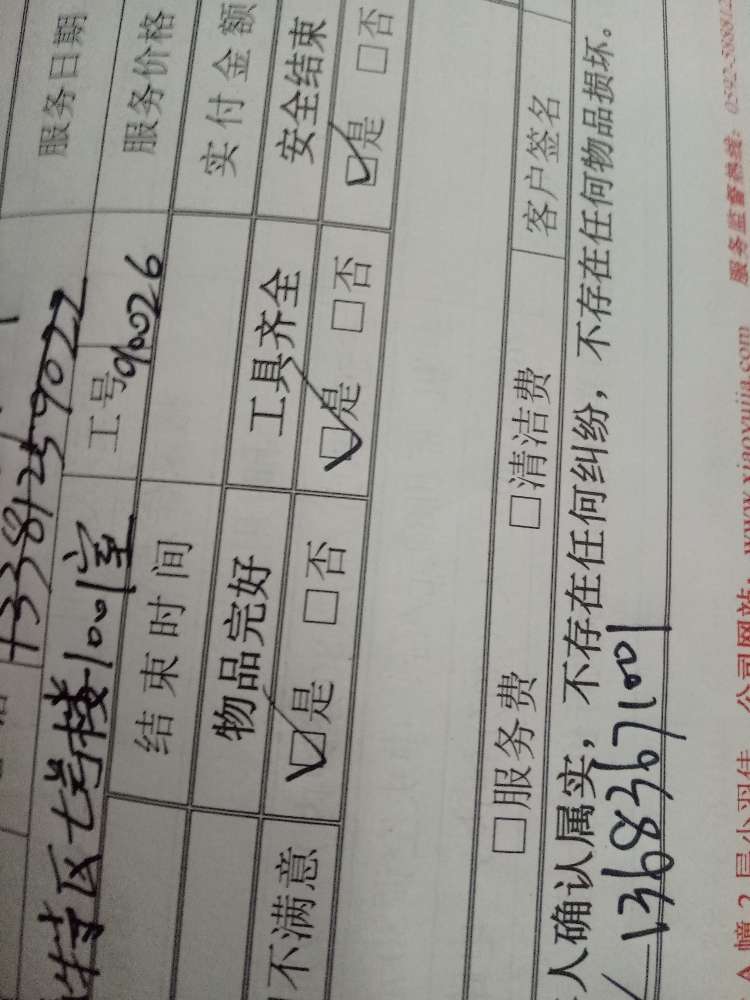 13381259022
特区七号楼1001室
工号 90026
服务日期
结束时间
服务价格
实付金额
物品完好
工具齐全
安全结束
不满意
☑是 □否
☑是 □否
☑是 □否
□服务费
□清洁费
客户签名
人确认属实，不存在任何纠纷，不存在任何物品损坏。
13683671001
公司网站：www.xiaoyujia.com
服务监督热线：